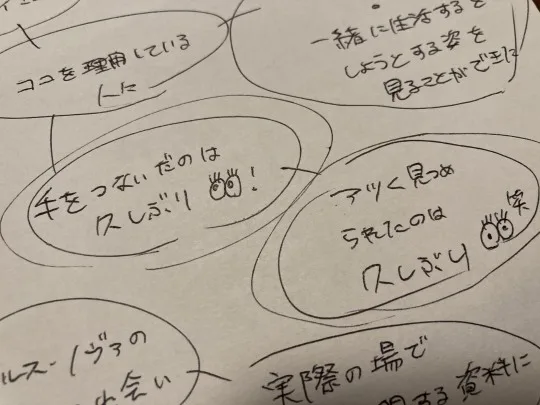 ココを理用している
人に
一緒に生活すると
しようとする姿を
見ることができた
手をつないだのは
久しぶり !
アツく見つめ
られたのは
久しぶり 笑
ルス-ノヴァの
会い
実際の場で
する資料に